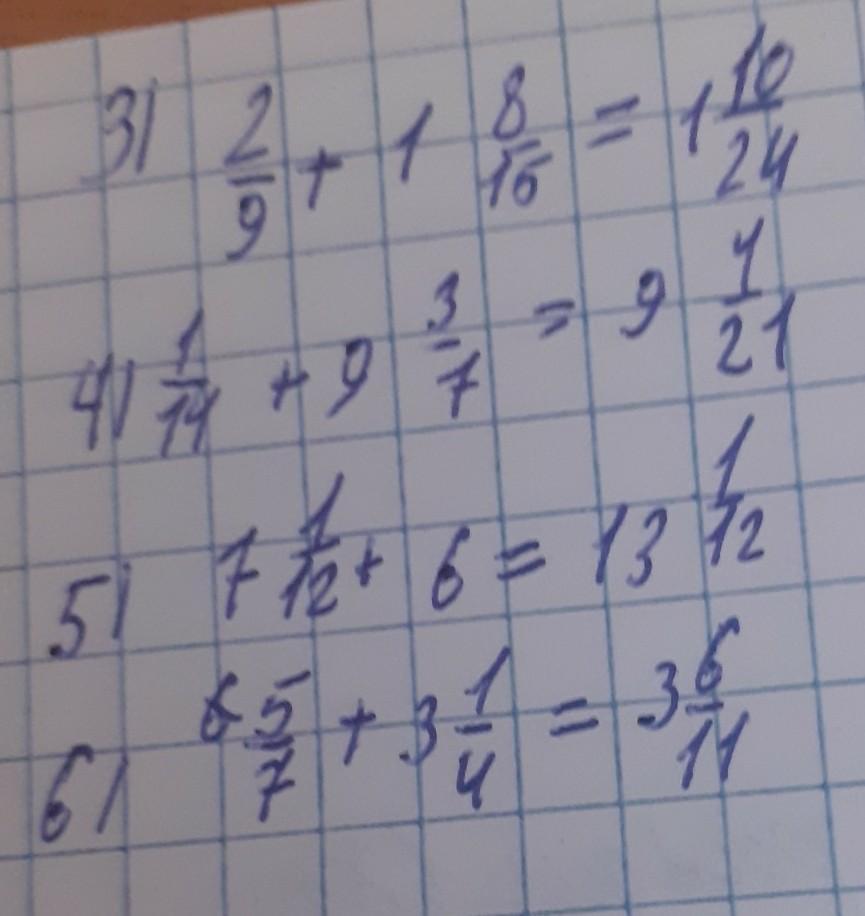 3) 2/9 + 1 8/15 = 1 10/24
4) 1/14 + 9 3/7 = 9 4/21
5) 7 1/12 + 6 = 13 1/12
6) 6 5/7 + 3 1/4 = 3 6/11